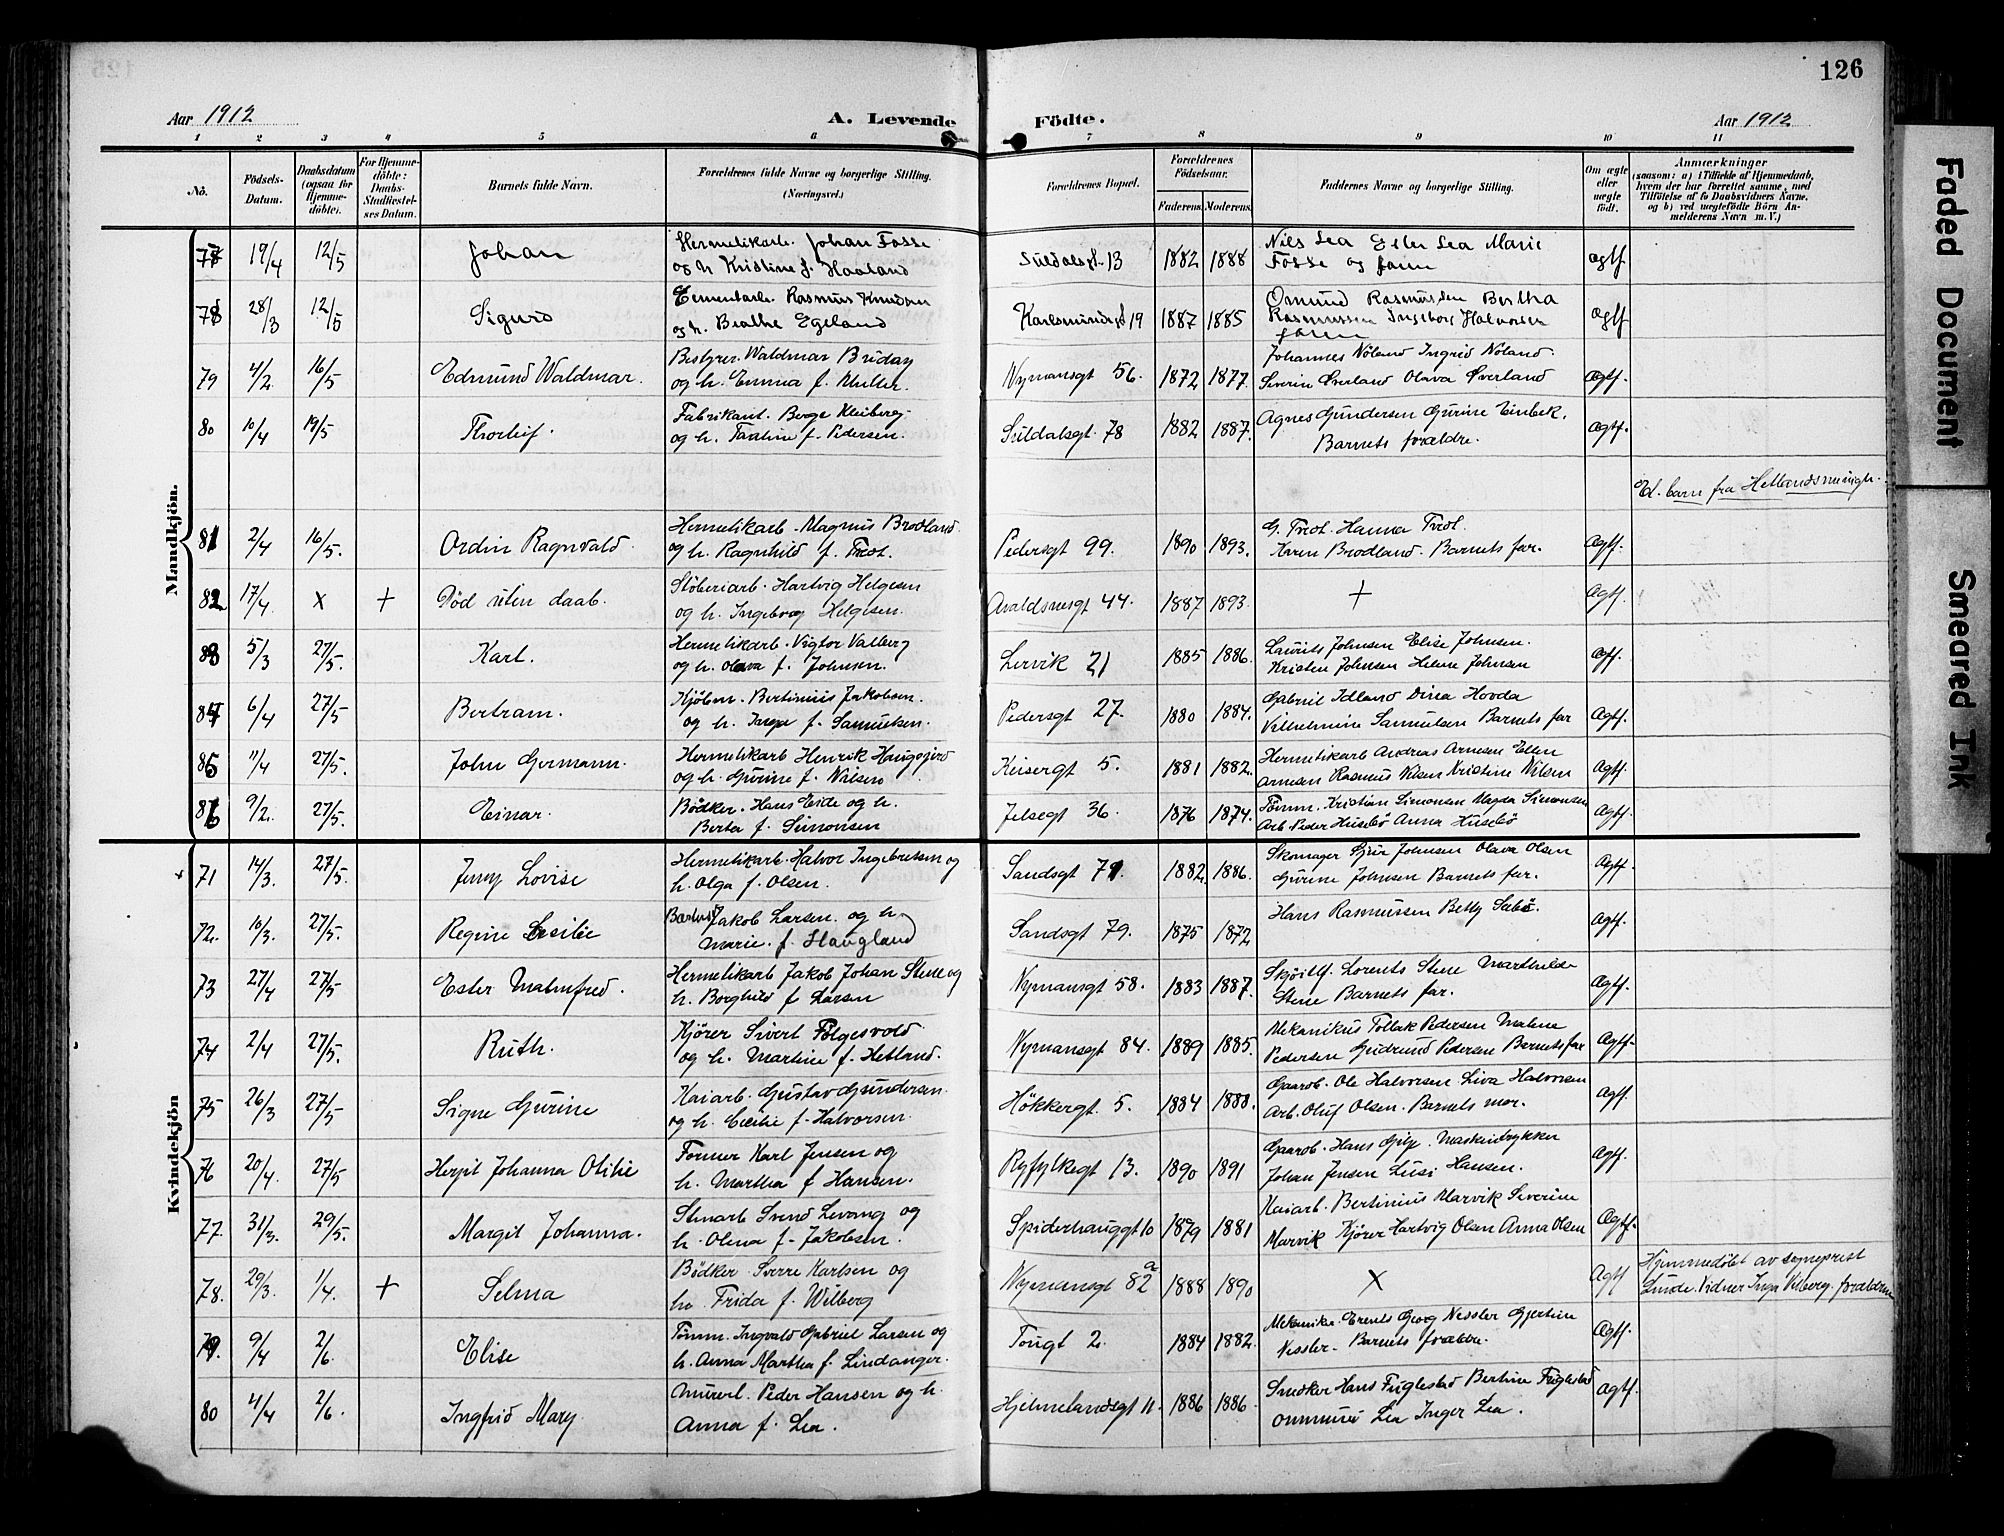 126
Aar 1912 A. Levende Födte. Aar 1912
1 2 3 4 5 6 7 8 9 10 11
No. Födsels-Datum. Daabsdatum (ogsaa for Hjemmedöbte). For Hjemmedöbte: Daabs-Stadfæstelses Datum. Barnets fulde Navn. Forældrenes fulde Navne og borgerlige Stilling. (Næringsvei.) Forældrenes Bopæl. Forældrenes Födselsaar. Faderens. Moderens. Faddernes Navne og borgerlige Stilling. Om ægte eller uægte födt. Anmærkninger (saasom: a) i Tilfælde af Hjemmedaab, hvem der har forrettet samme, med Tilföielse af to Daabsvidners Navne, og b) ved uægtefödte Börn Anmelderens Navn m. V.)
Mandkjön.
77 19/4 12/5 Johan Hermetikarb. Johan Fosse Suldalsgt. 13 1882 1888 Nils Lea Ester Lea Marie ægtf
og h. Kristine f. Haaland Fosse og faren
78 28/3 12/5 Sigurd Cementarb. Rasmus Knudsen Karlsmindegt 19 1887 1885 Omund Rasmussen Bertha ægtf
og h. Berthe Egeland Rasmussen Ingeborg Halvorsen
faren
79 4/2 16/5 Edmund Waldmar. Bestyrer Waldmar Briday Nymansgt 56. 1872 1877. Johannes Nöland Ingrid Nöland. Ægtf.
og h. Emma f. Muller. Severin Överland Olava Överland
80 10/4 19/5 Thorleif. Fabrikant. Berge Kleiberg Suldalsgt. 78 1882 1887. Agnes Gundersen Gurine Einbek. Ægtf.
og h. Taaline f. Pedersen. Barnets forældre.
Et barn fra Hetlandsmenigh.
81 2/4 16/5. Ordin Ragnvald. Hermetikarb. Magnus Brodland Pedersgt 99. 1890 1893. G. Tveot. Hanna Tveot. Ægtf.
og h. Ragnhild f. Tveot. Karen Brodland. Barnets far.
82 17/4. x + Död uten daab. Stöberiarb. Hartvig Helgesen Avaldsnesgt 44. 1887 1893. + Ægtf.
og h. Ingeborg Helgesen.
83 5/3 27/5. Karl. Hermetikarb. Vigtor Valberg Lervik 21 1885 1886. Laurits Johnsen Elise Johnsen. Ægtf.
og h. Olava f. Johnsen. Kristen Johnsen Helene Johnsen
84 6/4 27/5 Bertram. Kjöbm. Bertinius Jakobsen. Pedersgt 27. 1880 1884. Gabriel Idland Dina Hovda Ægtf.
og h. Inga f. Samuelsen. Vilhelmine Samuelsen Barnets far
85 11/4 27/5. John Germann. Hermetikarb Henrik Haugsgjerd Keisergt 5. 1881 1882. Hermetikarb Andreas Arnesen Ellen Ægtf.
og h. Gurine f. Nilsen Arnesen Rasmus Nilsen Kristine Nilsen
86 9/2. 27/5. Einar. Bödker. Hans Eide og h. Jelsegt 36. 1876 1874. Tömm. Kristian Simonsen Magda Simonsen Ægtf.
Berta f. Simonsen Arb. Peder Husebö Anna Husebö
Kvindekjön
71 14/3. 27/5. Jenny Lovise Hermetikarb. Halvor Ingebretsen og Sandsgt 71. 1882 1886. Skomager Sjur Johnsen Olava Olsen Ægtf.
h. Olga f. Olsen. Gurine Johnsen Barnets far.
72. 10/3. 27/5. Regine Cecilie Jakob Larsen og h. Sandsgt 79. 1875 1872 Hans Rasmussen Betty Sæbö. Ægtf.
Marie. f. Haugland
73 27/4 27/5 Ester Malmfred. Hermetikarb Jakob Johan Stene og Nymansgt 58. 1883 1887. Lorents Stene Marthilde Ægtf.
h. Borghild f Larsen Stene Barnets far.
74 2/4 27/5. Ruth. Kjörer Sivert Fölgesvold Nymansgt 84. 1889 1885. Mekanikus Tollak Pedersen Malene Ægtf.
og h. Martine f. Hetland. Pedersen Gudrund Pedersen Barnets far
75 26/3 27/5 Signe Gurine Kaiarb. Gustav Gundersen Hökkergt 5. 1884 1888. Gaardb. Ole Halvorsen Liva Halvorsen Ægtf.
og h. Cecilie f. Halvorsen. Arb. Oluf Olsen. Barnets mor.
76 20/4. 27/5 Herjit Johanna Otilie Former Karl Jensen og Ryfylkegt 13. 1890 1891 Gaardb. Hans Gilje. Maskintrykker Ægtf.
h. Martha f Hansen. Johan Jensen Lusi Hansen.
77. 31/3. 29/5. Margit Johanna. Stenarb Svend Levang og Spiderhauggt 10 1879 1881 Kaiarb. Bertinius Marvik Severine Ægtf.
h. Olena f. Jakobsen. Marvik Kjörer Hartvig Olsen Anna Olsen
78. 29/3. 1/4. + Selma Bödker Sverre Karlsen og Nymansgt 82a 1888 1890 X Ægtf Hjemmedöbt av sogneprest
h. Frida f. Wilberg Lunde. Vidner Inga Vilberg. forældrene
79. 9/4 2/6. Elise Tömm. Ingvald Gabriel Larsen og Tougt 2. 1884 1882. Mekaniker. Georg Nessler Gjertine Ægtf.
h. Anna Martha f. Lindanger. Nessler. Barnets forældre.
80 4/4 2/6. Ingfrid Mary Murerl. Peder Hansen og h. Hjelmelandsgt 11. 1886 1886. Snedker Hans Fuglestad Bertine Fuglestad Ægtf.
Anna f. Lea. Lea Inger Lea.
Faded Document
Smeared Ink